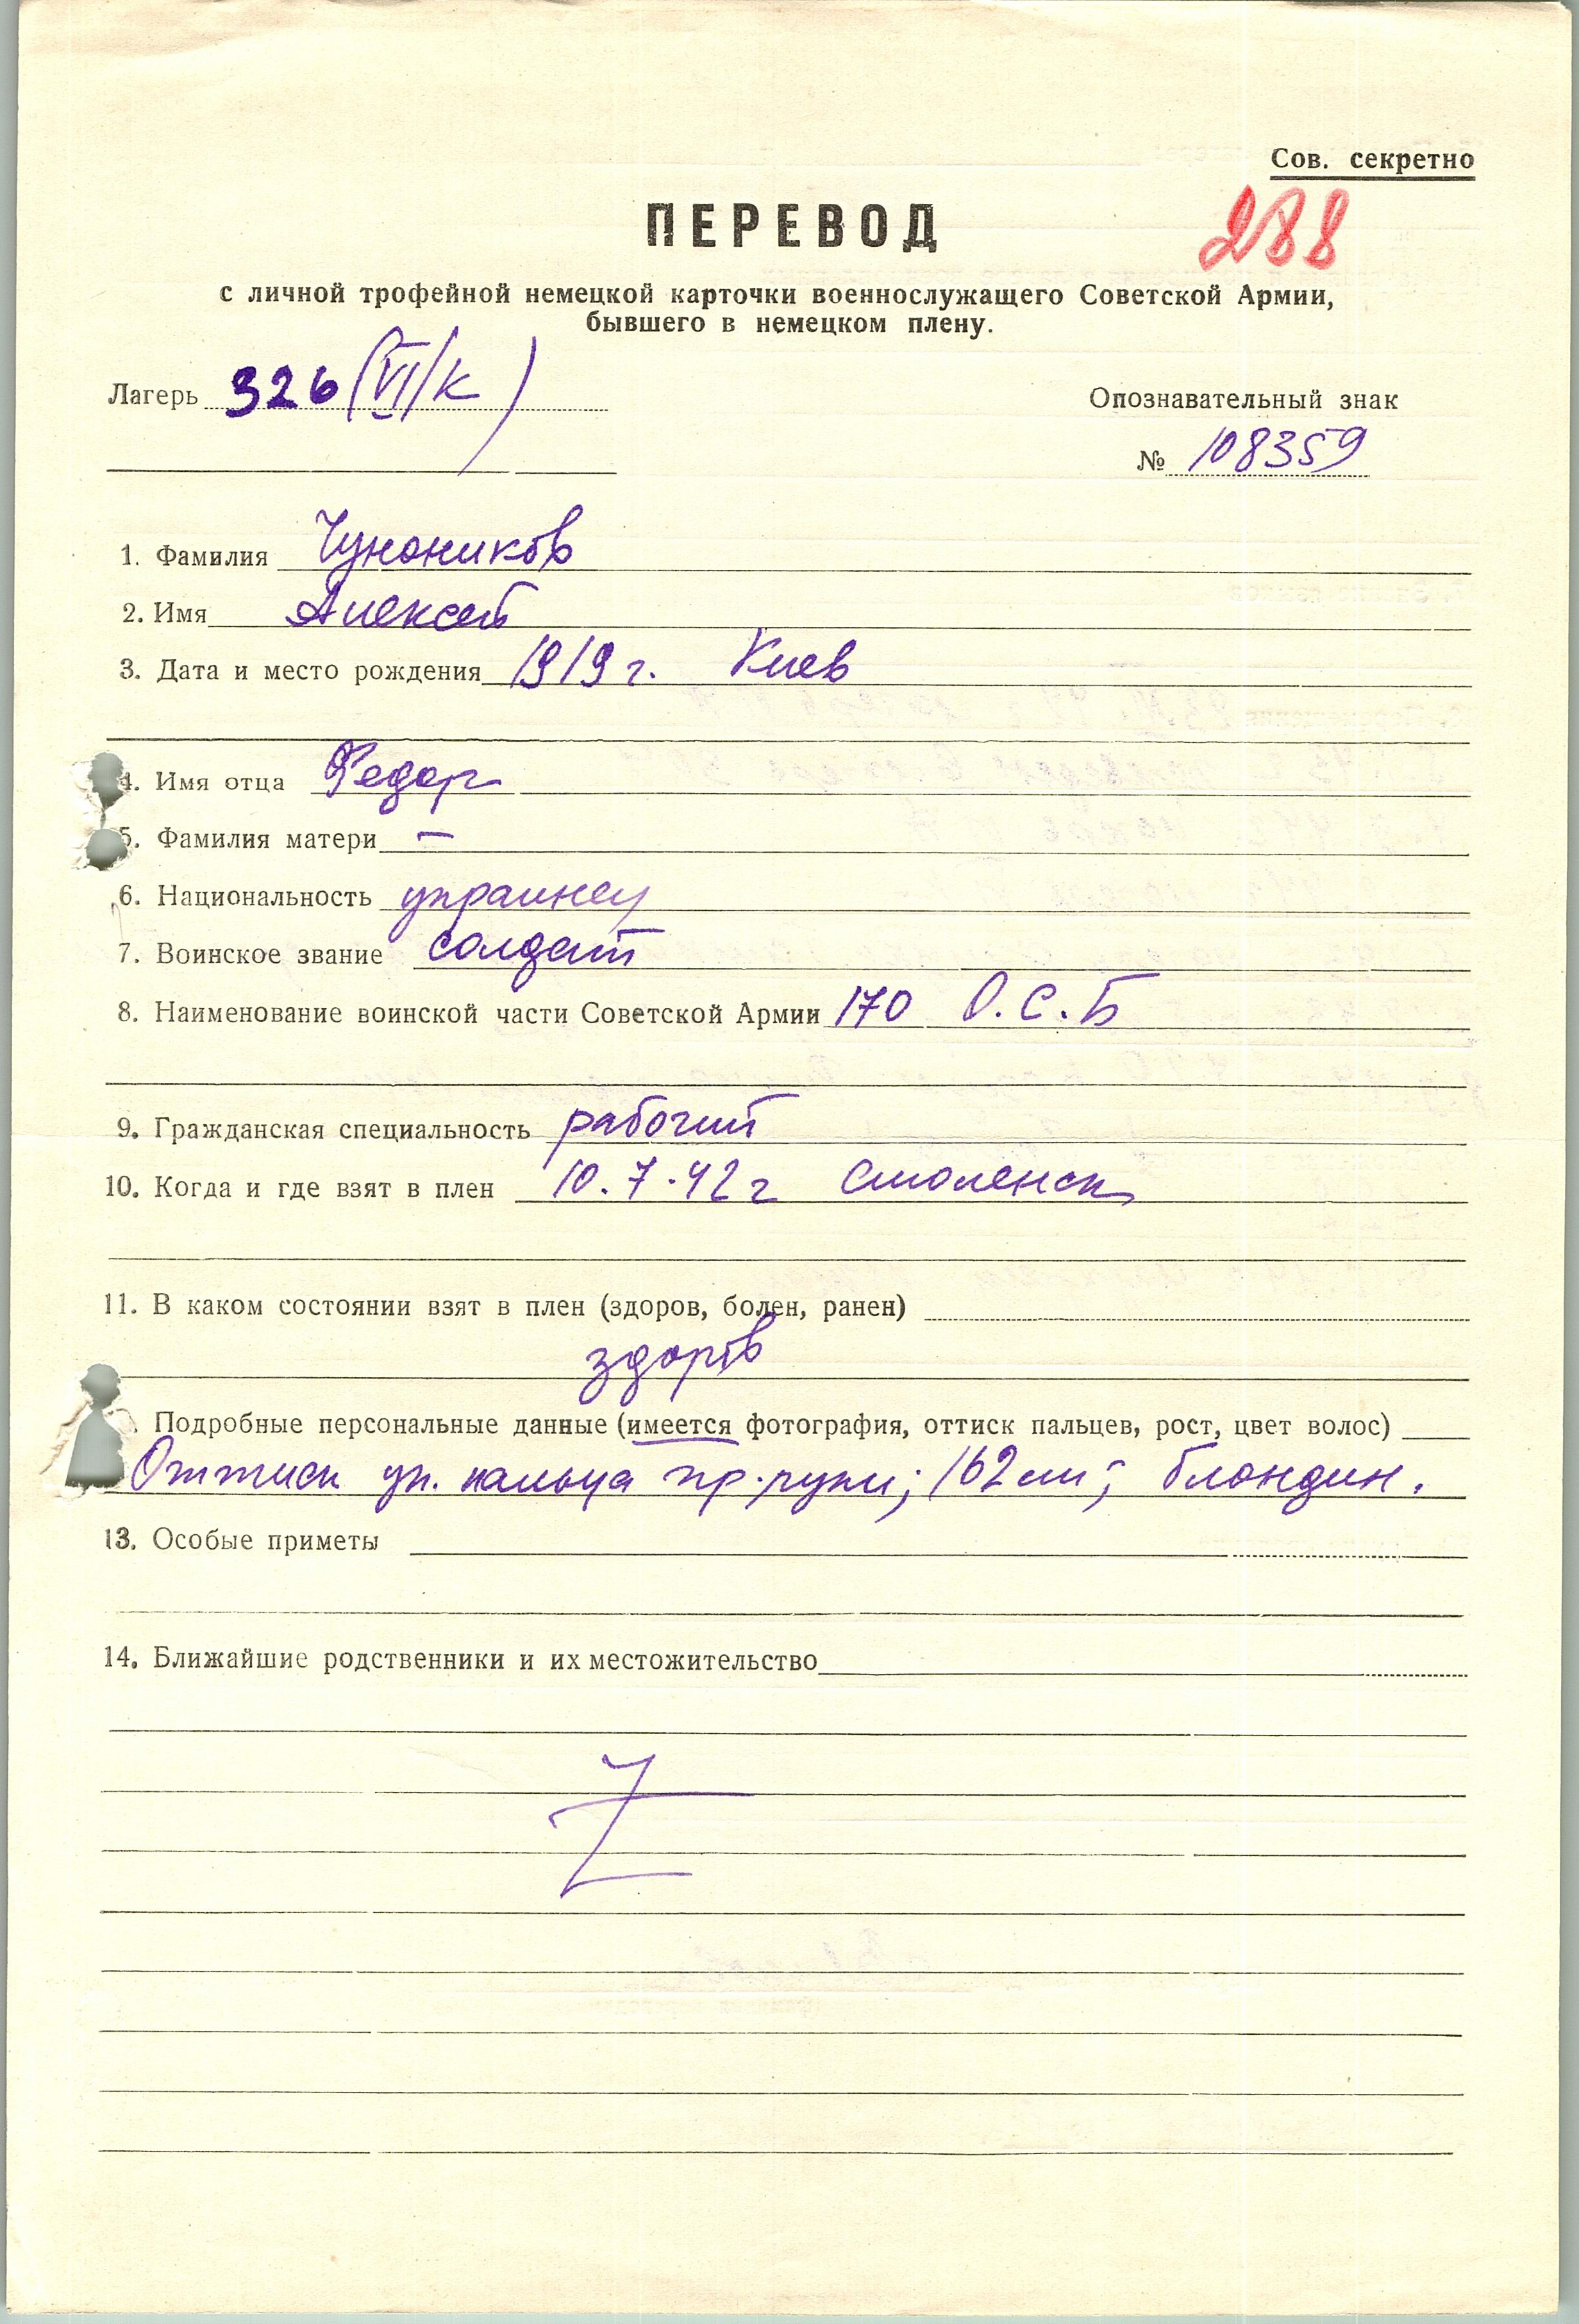 Сов. секретно
ПЕРЕВОД
288
с личной трофейной немецкой карточки военнослужащего Советской Армии,
бывшего в немецком плену.
Лагерь 326 (VI/К)
Опознавательный знак
№ 108359
1. Фамилия Чуноников
2. Имя Алексей
3. Дата и место рождения 1919 г. Киев
4. Имя отца Федор
5. Фамилия матери —
6. Национальность украинец
7. Воинское звание солдат
8. Наименование воинской части Советской Армии 170 О.С.Б
9. Гражданская специальность рабочий
10. Когда и где взят в плен 10.7.42 г Смоленск
11. В каком состоянии взят в плен (здоров, болен, ранен)
здоров
Подробные персональные данные (имеется фотография, оттиск пальцев, рост, цвет волос)
Оттиск ук. пальца пр. руки; 162 см; блондин.
13. Особые приметы
14. Ближайшие родственники и их местожительство
Z